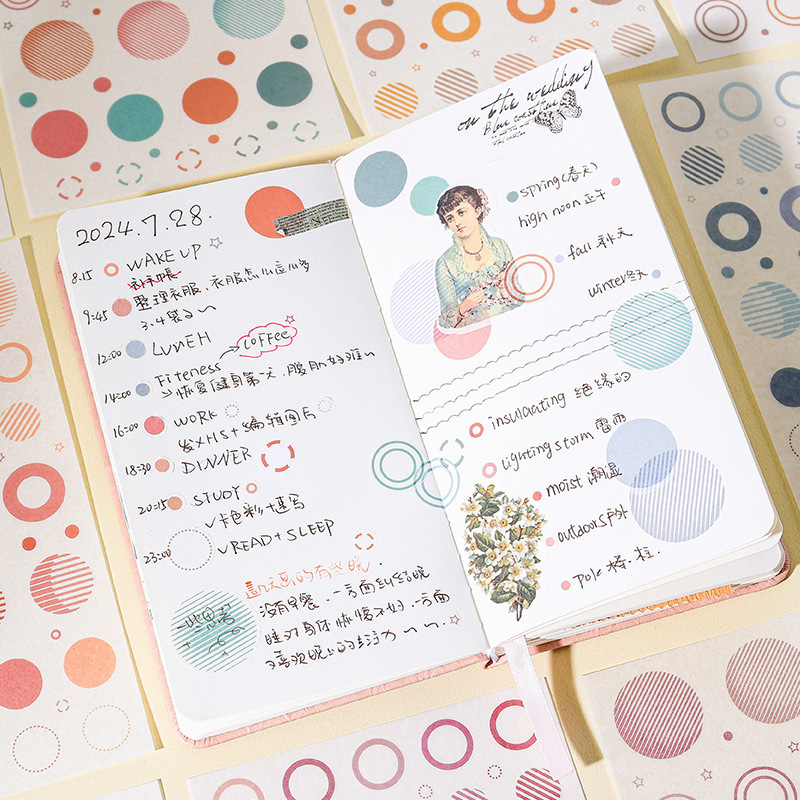 2024.7.28.
8:15 WAKE UP
9:45 整理衣服、衣服怎么这么多
3.4袋了~
12:00 LUNEH
COFFEE
14:00 Fiteness
>恢复健身第一天,腹肌好难~
16:00 WORK
发XHS+编辑图片
18:30 DINNER
20:15 STUDY
✓卡色彩+速写
23:00 ✓READ+SLEEP
没有早餐,一方面到结晚
睡对身体恢复不好,一方面
喜欢晚上的
on the wedding
spring(春天)
high noon 正午
fall 秋天
winter冬天
insulating 绝缘的
lightingstorm 雷雨
moist 潮湿
outdoors户外
Pole 椅.柱.